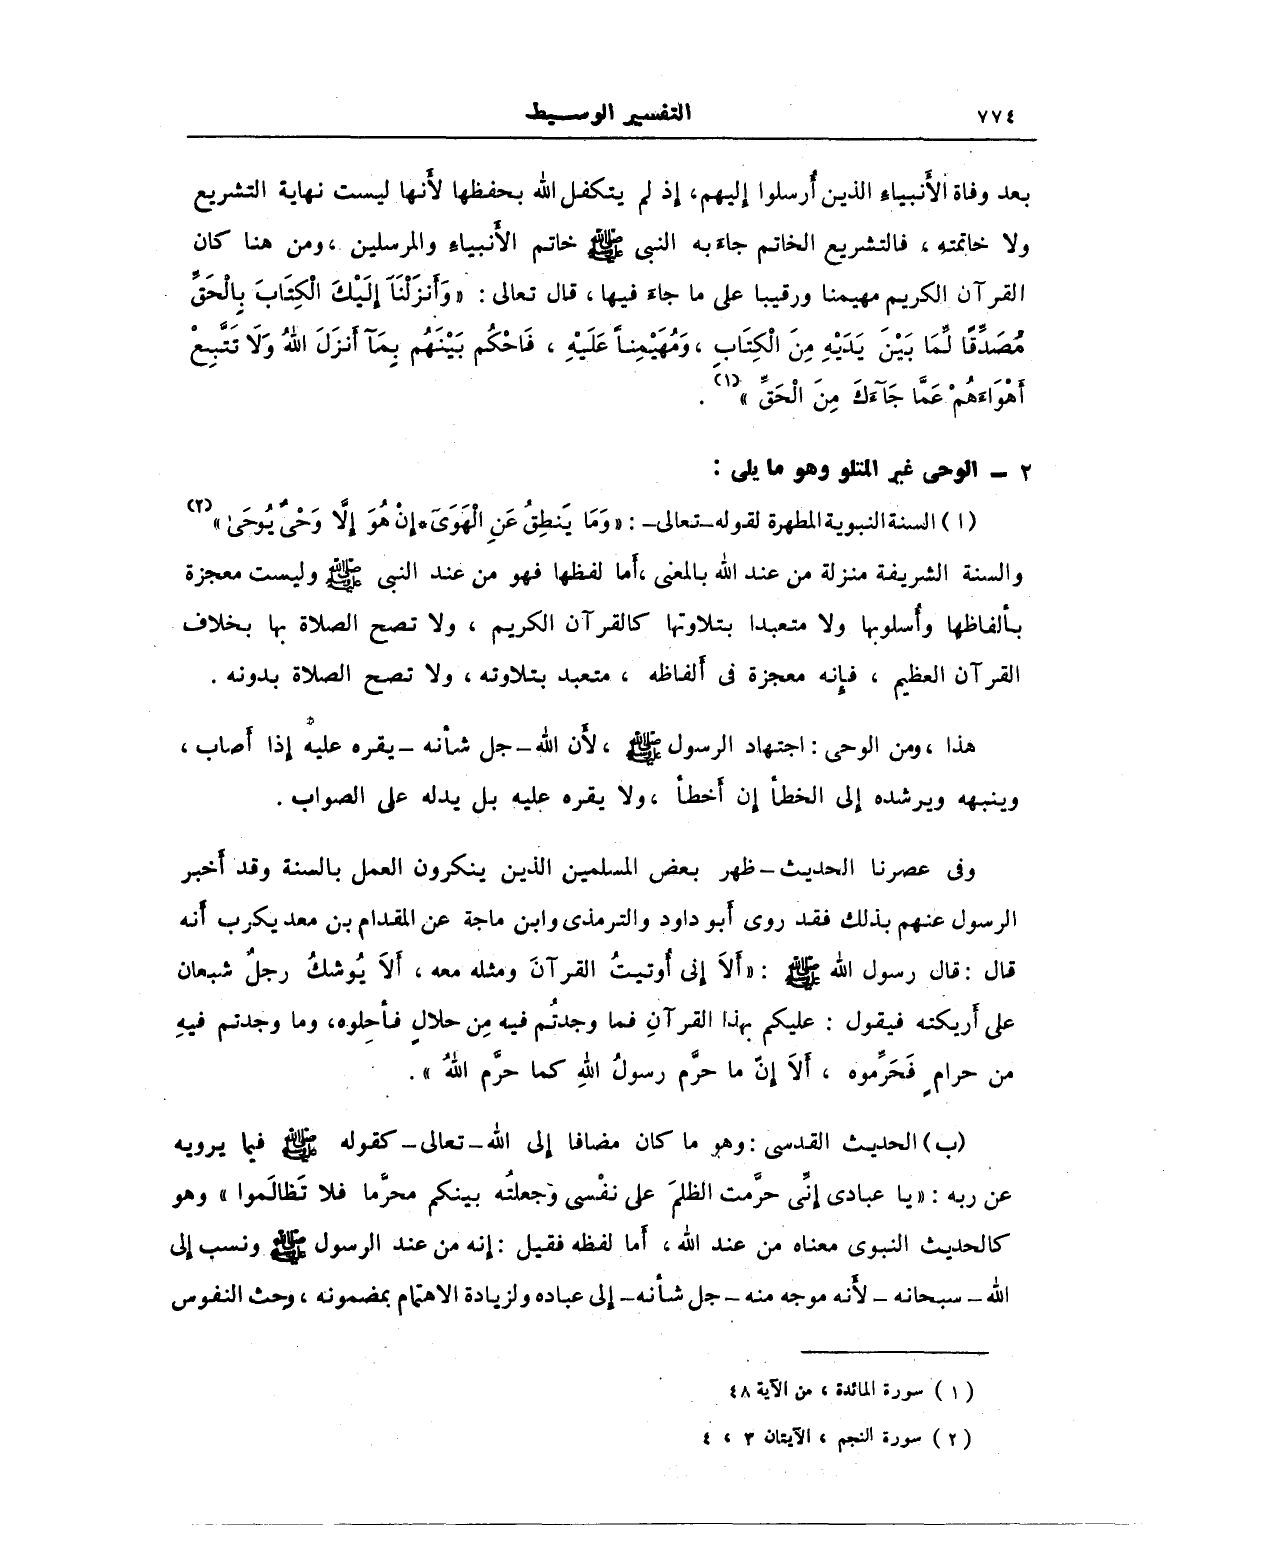 ٧٧٤ التفسير الوسيط
بعد وفاة الأنبياء الذين أُرسلوا إليهم، إذ لم يتكفل الله بحفظها لأنها ليست نهاية التشريع
ولا خاتمته ، فالتشريع الخاتم جاء به النبى ﷺ خاتم الأنبياء والمرسلين ، ومن هنا كان
القرآن الكريم مهيمنا ورقيبا على ما جاء فيها ، قال تعالى : « وَأَنزَلْنَآ إِلَيْكَ الْكِتَابَ بِالْحَقِّ
مُصَدِّقًا لِّمَا بَيْنَ يَدَيْهِ مِنَ الْكِتَابِ ، وَمُهَيْمِناً عَلَيْهِ ، فَاحْكُم بَيْنَهُم بِمَآ أَنزَلَ اللهُ وَلَا تَتَّبِعْ
أَهْوَاءَهُمْ عَمَّا جَآءَكَ مِنَ الْحَقِّ »(١) .
٢ – الوحى غير المتلو وهو ما يلى :
( ا ) السنة النبوية المطهرة لقوله – تعالى – : « وَمَا يَنطِقُ عَنِ الْهَوَىَ * إِنْ هُوَ إِلَّا وَحْىٌ يُوحَىٰ »(٢)
والسنة الشريفة منزلة من عند الله بالمعنى ، أما لفظها فهو من عند النبى ﷺ وليست معجزة
بألفاظها وأُسلوبها ولا متعبدا بتلاوتها كالقرآن الكريم ، ولا تصح الصلاة بها بخلاف
القرآن العظيم ، فإنه معجزة فى ألفاظه ، متعبد بتلاوته ، ولا تصح الصلاة بدونه .
هذا ، ومن الوحى : اجتهاد الرسول ﷺ ، لأن الله – جل شأنه – يقره عليه إذا أصاب ،
وينبهه ويرشده إلى الخطأ إن أخطأ ، ولا يقره عليه بل يدله على الصواب .
وفى عصرنا الحديث – ظهر بعض المسلمين الذين ينكرون العمل بالسنة وقد أخبر
الرسول عنهم بذلك فقد روى أبو داود والترمذى وابن ماجة عن المقدام بن معد يكرب أنه
قال : قال رسول الله ﷺ : « أَلاَ إنى أُوتيتُ القرآنَ ومثله معه ، أَلاَ يُوشكُ رجلٌ شبعان
على أريكته فيقول : عليكم بهذا القرآنِ فما وجدتُم فيه مِن حلالٍ فأحِلوه، وما وجدتم فيهِ
من حرامٍ فَحَرِّموه ، أَلاَ إنّ ما حرَّم رسولُ اللهِ كما حرَّم اللهُ » .
(ب) الحديث القدسى : وهو ما كان مضافا إلى الله – تعالى – كقوله ﷺ فيما يرويه
عن ربه : « يا عبادى إنِّى حرَّمت الظلمَ على نفْسى وَجعلتُه بينكم محرَّما فلا تَظالَموا » وهو
كالحديث النبوى معناه من عند الله ، أما لفظه فقيل : إنه من عند الرسول ﷺ ونسب إلى
الله – سبحانه – لأنه موجه منه – جل شأنه – إلى عباده ولزيادة الاهتمام بمضمونه ، وحث النفوس
( ١ ) سورة المائدة ، من الآية ٤٨
( ٢ ) سورة النجم ، الآيتان ٣ ، ٤